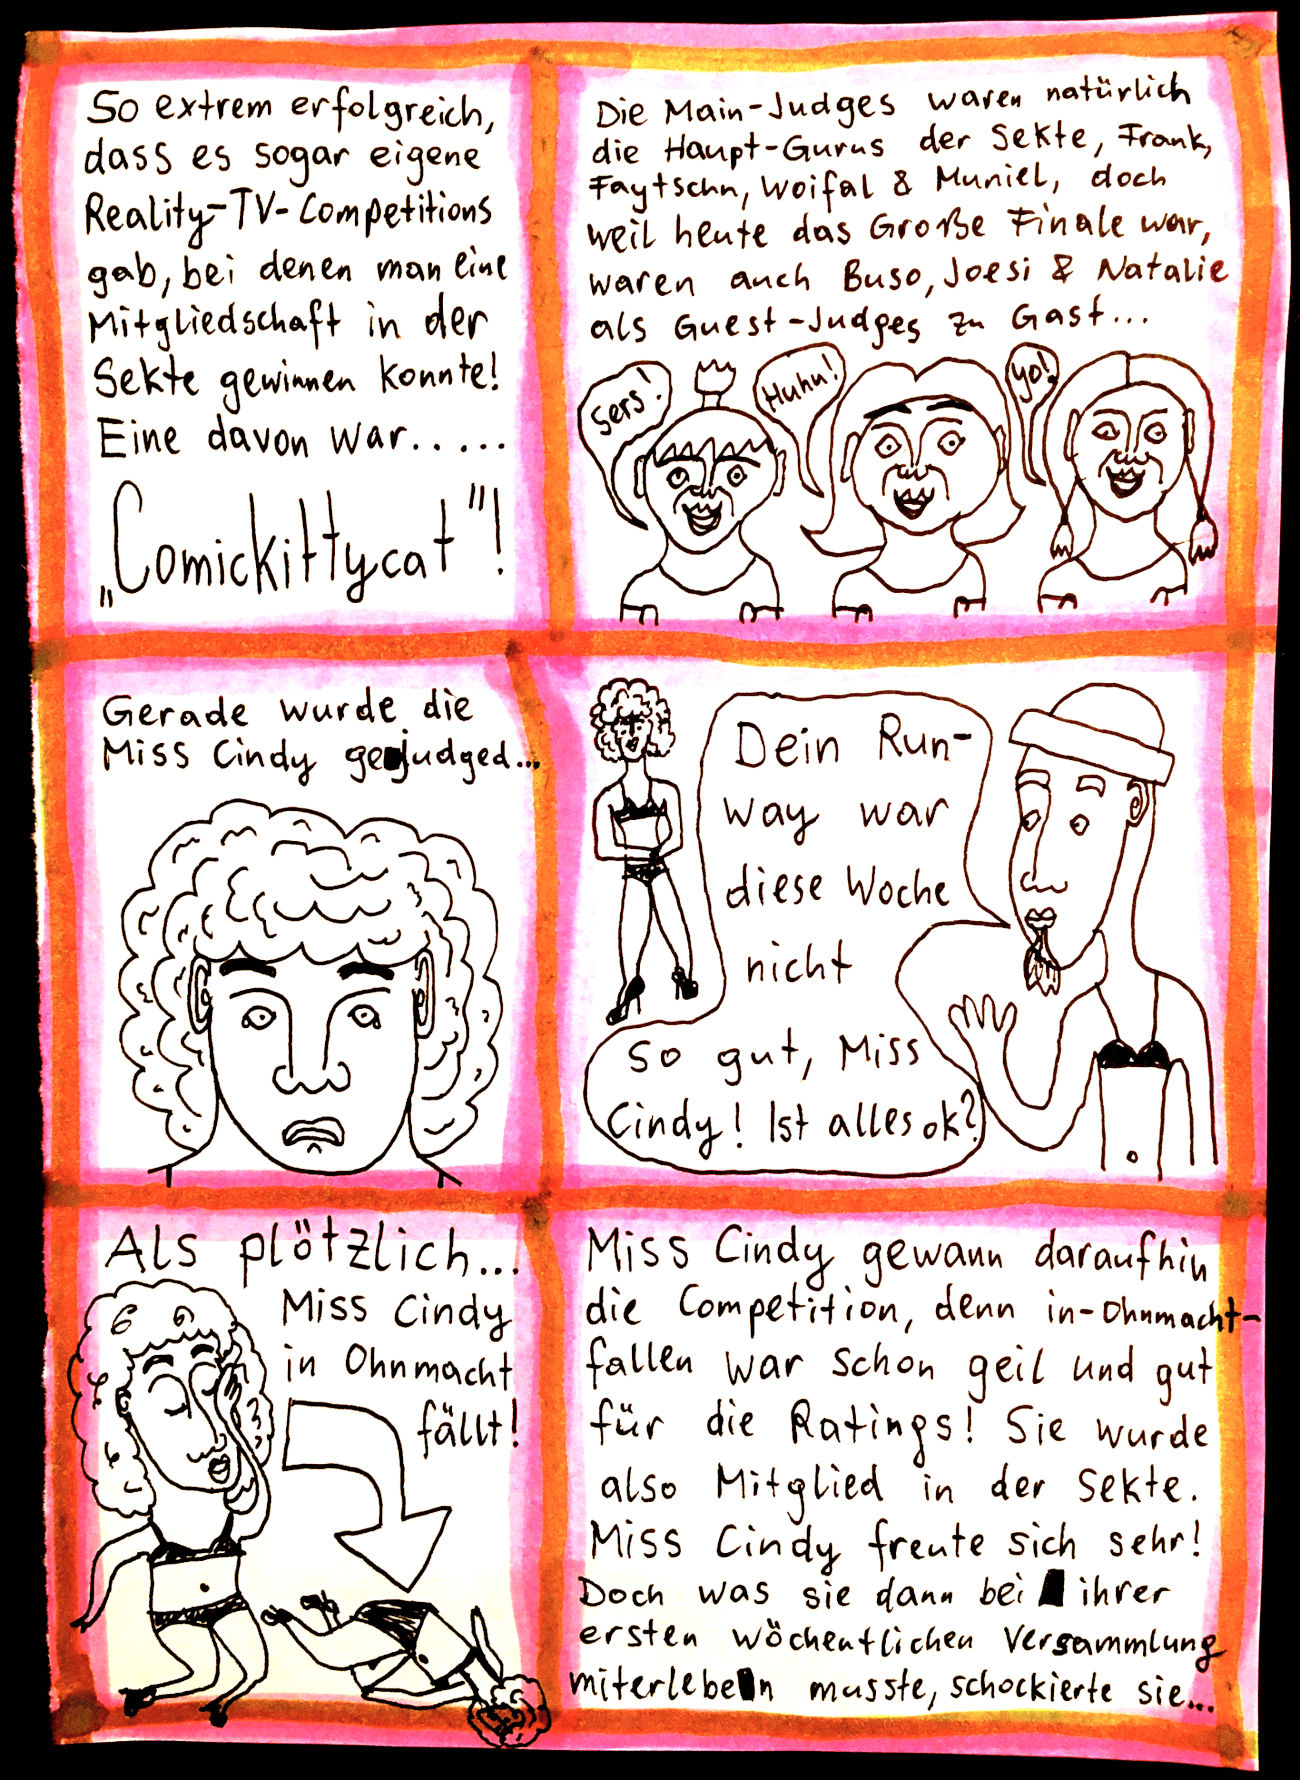 So extrem erfolgreich,
dass es sogar eigene
Reality-TV-Competitions
gab, bei denen man eine
Mitgliedschaft in der
Sekte gewinnen konnte!
Eine davon war.....
„Comickittycat"!
Die Main-Judges waren natürlich
die Haupt-Gurus der Sekte, Frank,
Faytschn, Woifal & Muniel, doch
weil heute das Große Finale war,
waren auch Buso, Joesi & Natalie
als Guest-Judges zu Gast...
Sers!
Huhu!
Yo!
Gerade wurde die
Miss Cindy gejudged...
Dein Run-
way war
diese Woche
nicht
so gut, Miss
Cindy! Ist alles ok?
Als plötzlich...
Miss Cindy
in Ohnmacht
fällt!
Miss Cindy gewann daraufhin
die Competition, denn in-Ohnmacht-
fallen war schon geil und gut
für die Ratings! Sie wurde
also Mitglied in der Sekte.
Miss Cindy freute sich sehr!
Doch was sie dann bei ihrer
ersten wöchentlichen Versammlung
miterleben musste, schockierte sie...